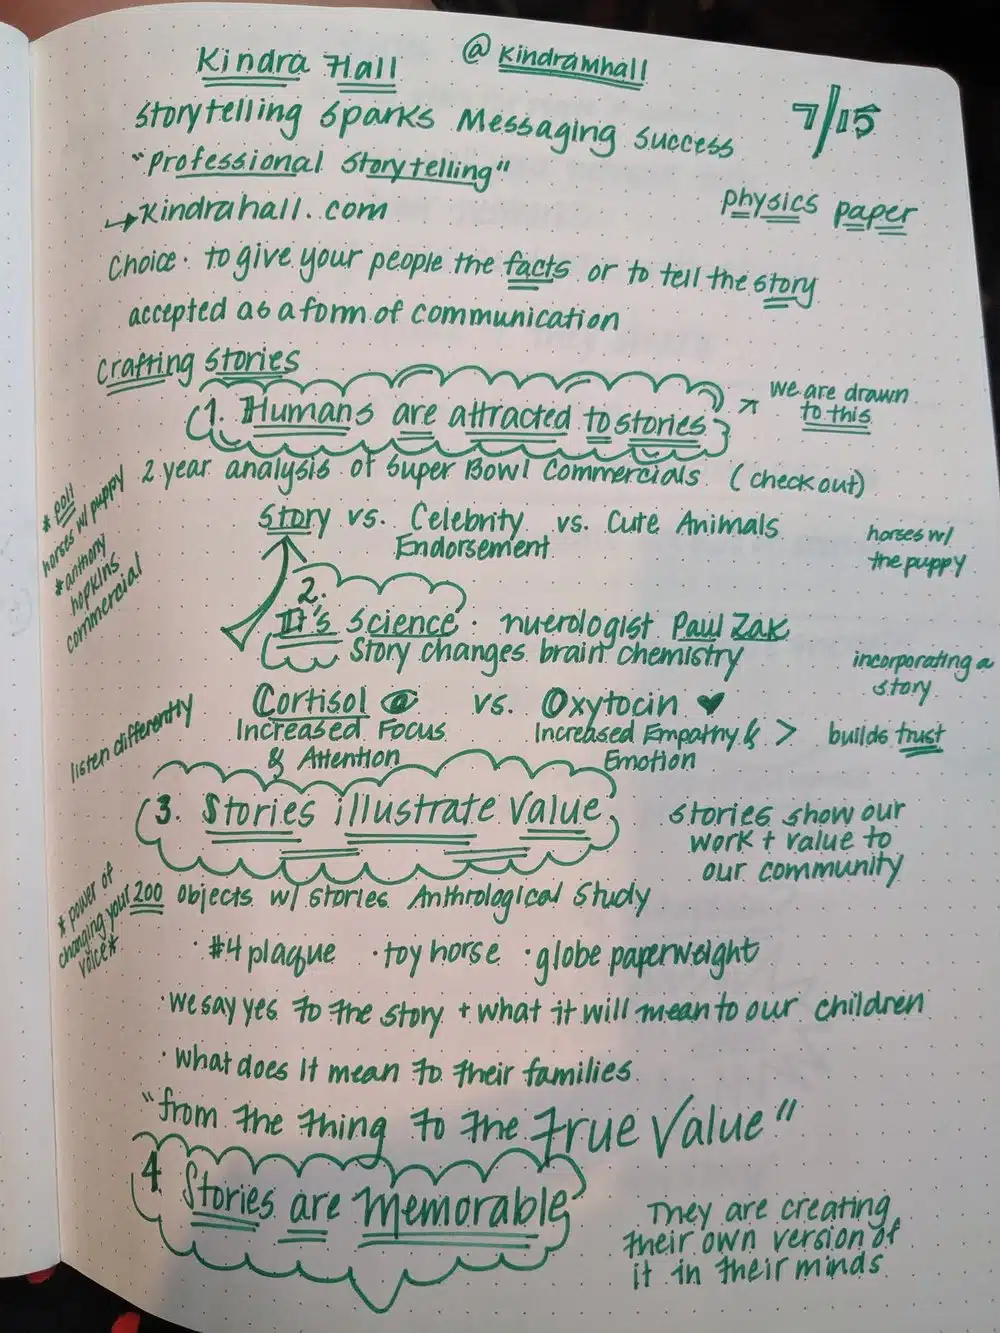 Kindra Hall @kindramhall
7/15
Storytelling Sparks Messaging Success
"Professional Storytelling"
→Kindrahall.com
physics paper
Choice. to give your people the facts or to tell the story
accepted as a form of communication
Crafting Stories
1. Humans are attracted to stories
↗ we are drawn
to this
2 year analysis of Super Bowl Commercials (check out)
* poll
horses w/ puppy
* anthony
hopkins
commercial
Story vs. Celebrity vs. Cute Animals
Endorsement
horses w/
the puppy
2.
It's Science. nuerologist Paul Zak
Story changes brain chemistry
incorporating a
story
Cortisol vs. Oxytocin ♥
Increased Focus Increased Empathy & > builds trust
& Attention Emotion
listen differently
3. Stories illustrate Value
stories show our
work + value to
our community
* power of
changing your
voice*
200 objects w/ stories Anthrological Study
· #4 plaque · toy horse · globe paperweight
· we say yes to the story + what it will mean to our children
· what does it mean to their families
"from the thing to the True Value"
4. Stories are Memorable
They are creating
their own version of
it in their minds